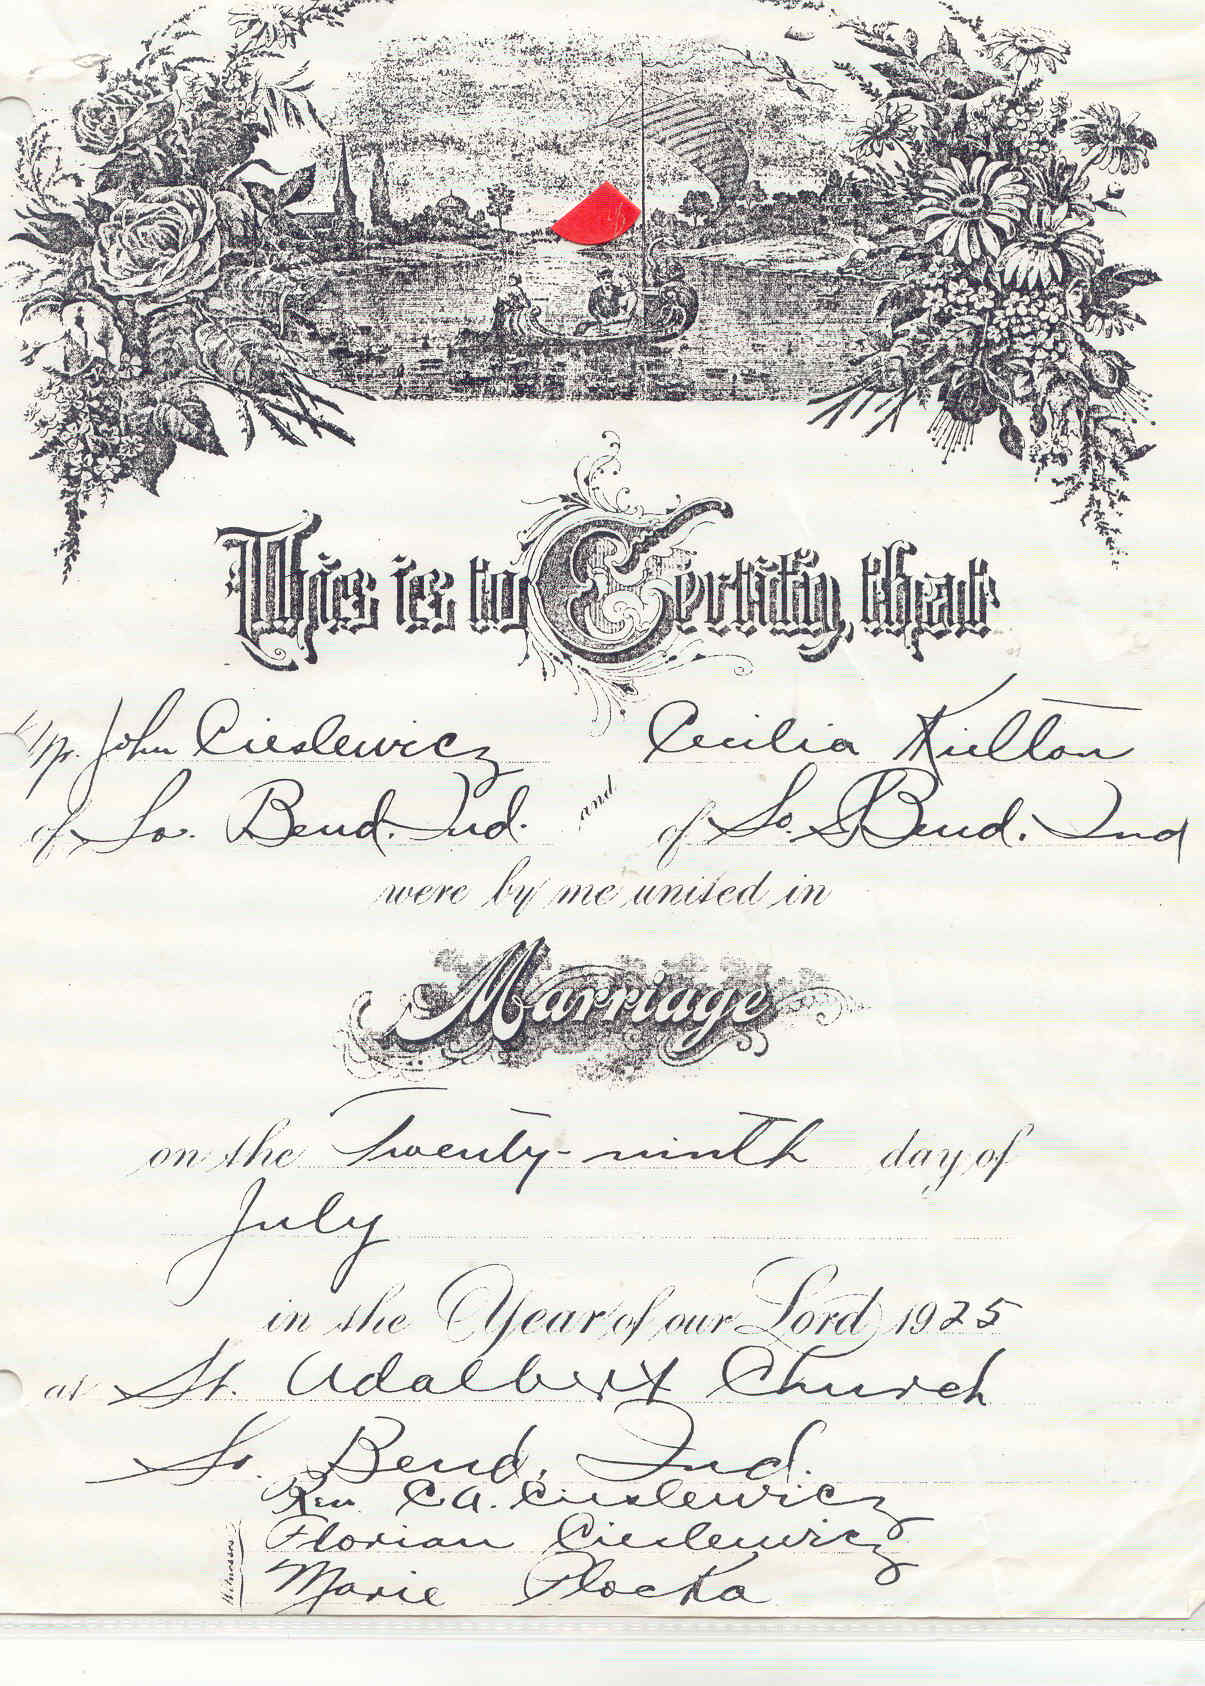 This is to Certify, that
Mr. John Cieslewicz Cecilia Kielton
of So. Bend. Ind. and of So. Bend. Ind
were by me united in
Marriage
on the Twenty-ninth day of
July
in the Year of our Lord 1925
at St. Adalbert Church
So. Bend, Ind.
Rev. C.A. Cieslewicz
Florian Cieslewicz
Witnesses
Marie Plocka